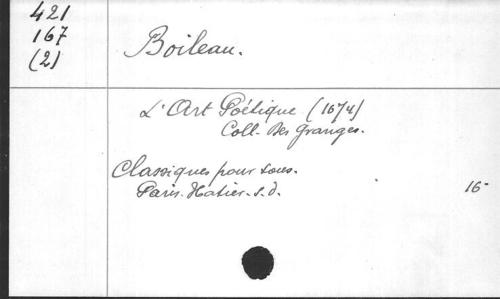 421
167
(2)
Boileau.
L'Art Poétique (1674)
Coll. Des Granges.
Classiques pour tous.
Paris. Hatier. s.d.
16-